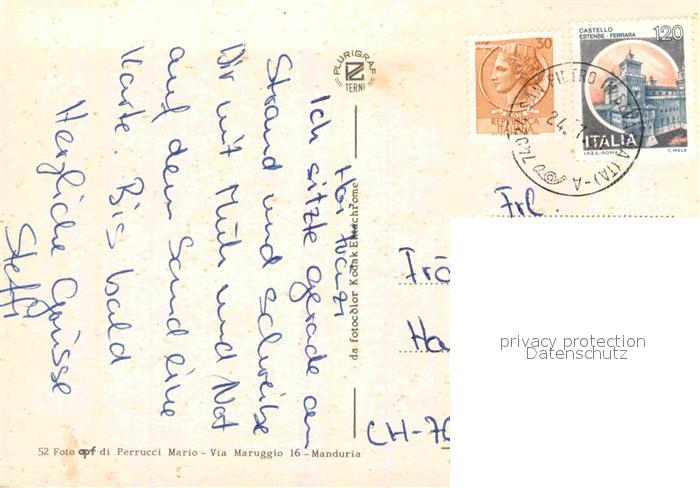 Ich sitze gerade am
Strand und schreibe
Dir mit Müh und Not
auf dem Sand eine
Karte. Bis bald
Herzliche Grüsse
Steffi
PLURIGRAF
TERNI
da fotocolor Kodak Ektachrome
52 Foto apf di Perrucci Mario - Via Maruggio 16 - Manduria
30
REPUBBLICA
ITALIANA
CASTELLO
ESTENSE - FERRARA
120
ITALIA
I.P.Z.S. - ROMA
T. MELE
SAN PIETRO IN BEVAGNA (TA) - A
24.7
Frl.
Frö
Ha
CH-70
privacy protection
Datenschutz